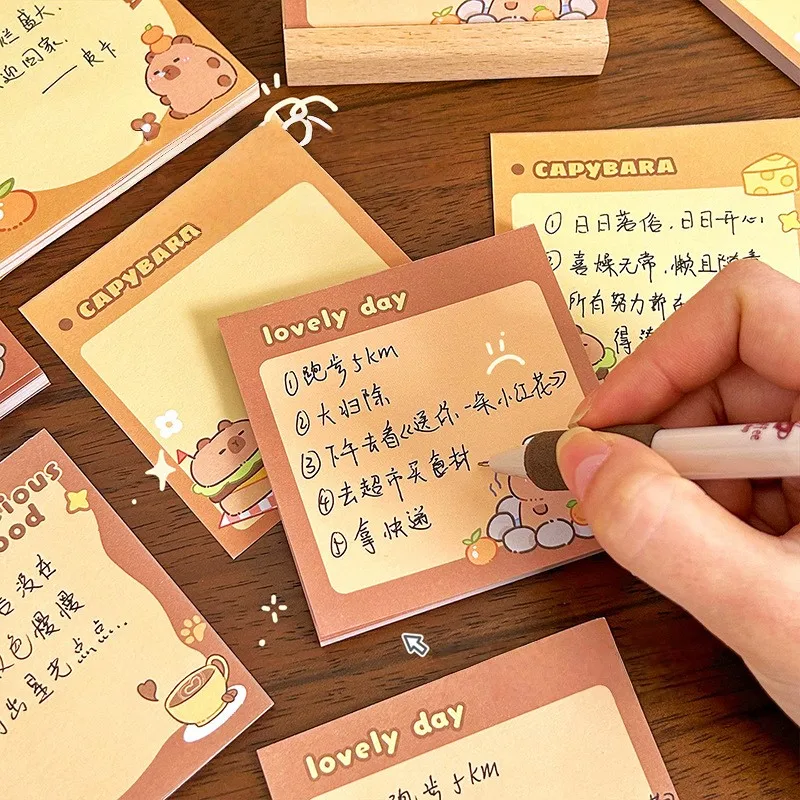 盛大.
回家.
—— 皮卡
CAPYBARA
CAPYBARA
① 日日落俗,日日开心,
喜燥无常,懒且随意
所有努力都在
得
lovely day
①跑步5km
②大扫除
③下午去看《送你一朵小红花》
④去超市买食材
⑤拿快递
ood
没在
色慢慢
出星光点点...
lovely day
跑步5km